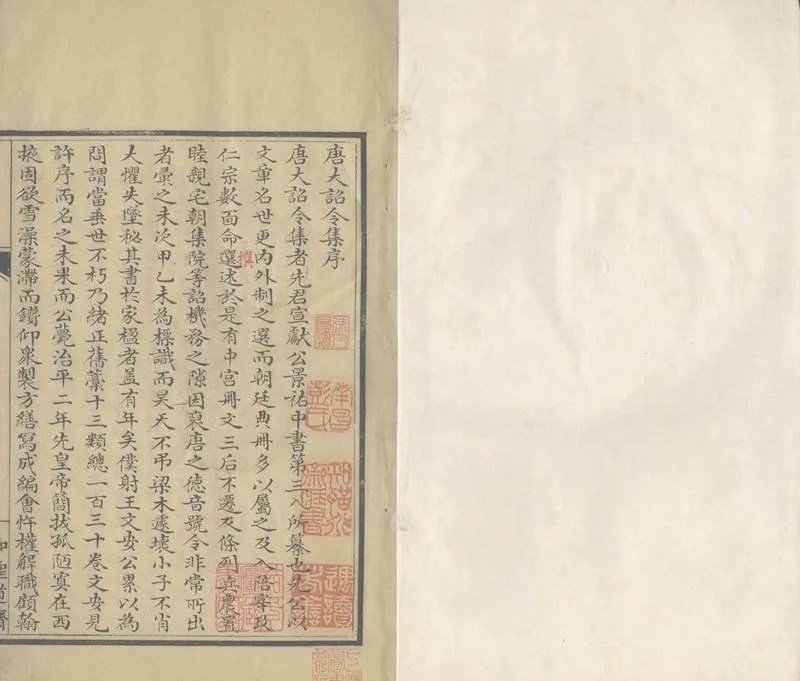 唐大詔令集序
唐大詔令集者先君宣獻公景祐中書第三入所纂也先公以
文章名世更內外制之選而朝廷典冊多以屬之及入陪宰政
仁宗數面命選述於是有中宮冊文三后不遷及條列兵農置
撰
睦親宅朝集院等詔機務之隙因裒唐之德音號令非常所出
者彙之未次甲乙未為標識而昊天不弔梁木遽壞小子不肖
大懼失墜秘其書於家楹者盖有年矣僕射王文安公累以為
問謂當垂世不朽乃緒正舊藁十三類總一百三十卷文安見
許序而名之未果而公薨治平二年先皇帝簡拔孤陋寘在西
掖因欲雪澡蒙滯而鑽仰衆製方繕寫成編會忤權解職顧翰
知聖道齋
南昌
彭氏
知聖道
齋藏書
遇讀
者善